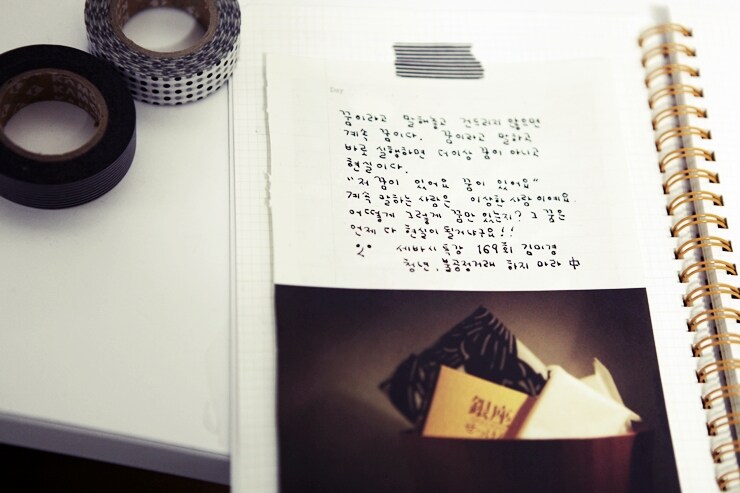 Day
꿈이라고 말해놓고 건드리지 않으면
계속 꿈이다. 꿈이라고 말하고
바로 실행하면 더이상 꿈이 아니고
현실이다.
"저 꿈이 있어요 꿈이 있어요"
계속 말하는 사람은 이상한 사람이에요.
어떻게 그렇게 꿈만 있는지? 그 꿈은
언제 다 현실이 될거냐구요!!
세바시 특강 169회 김미경
청년, 불공정거래 하지 마라 中
銀座